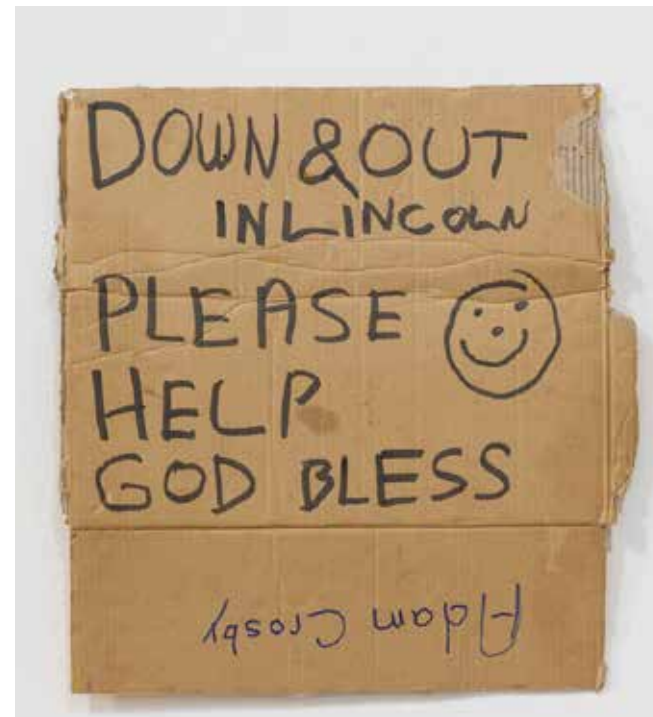 DOWN & OUT
IN LINCOLN
PLEASE
HELP
GOD BLESS
Adam Crosby